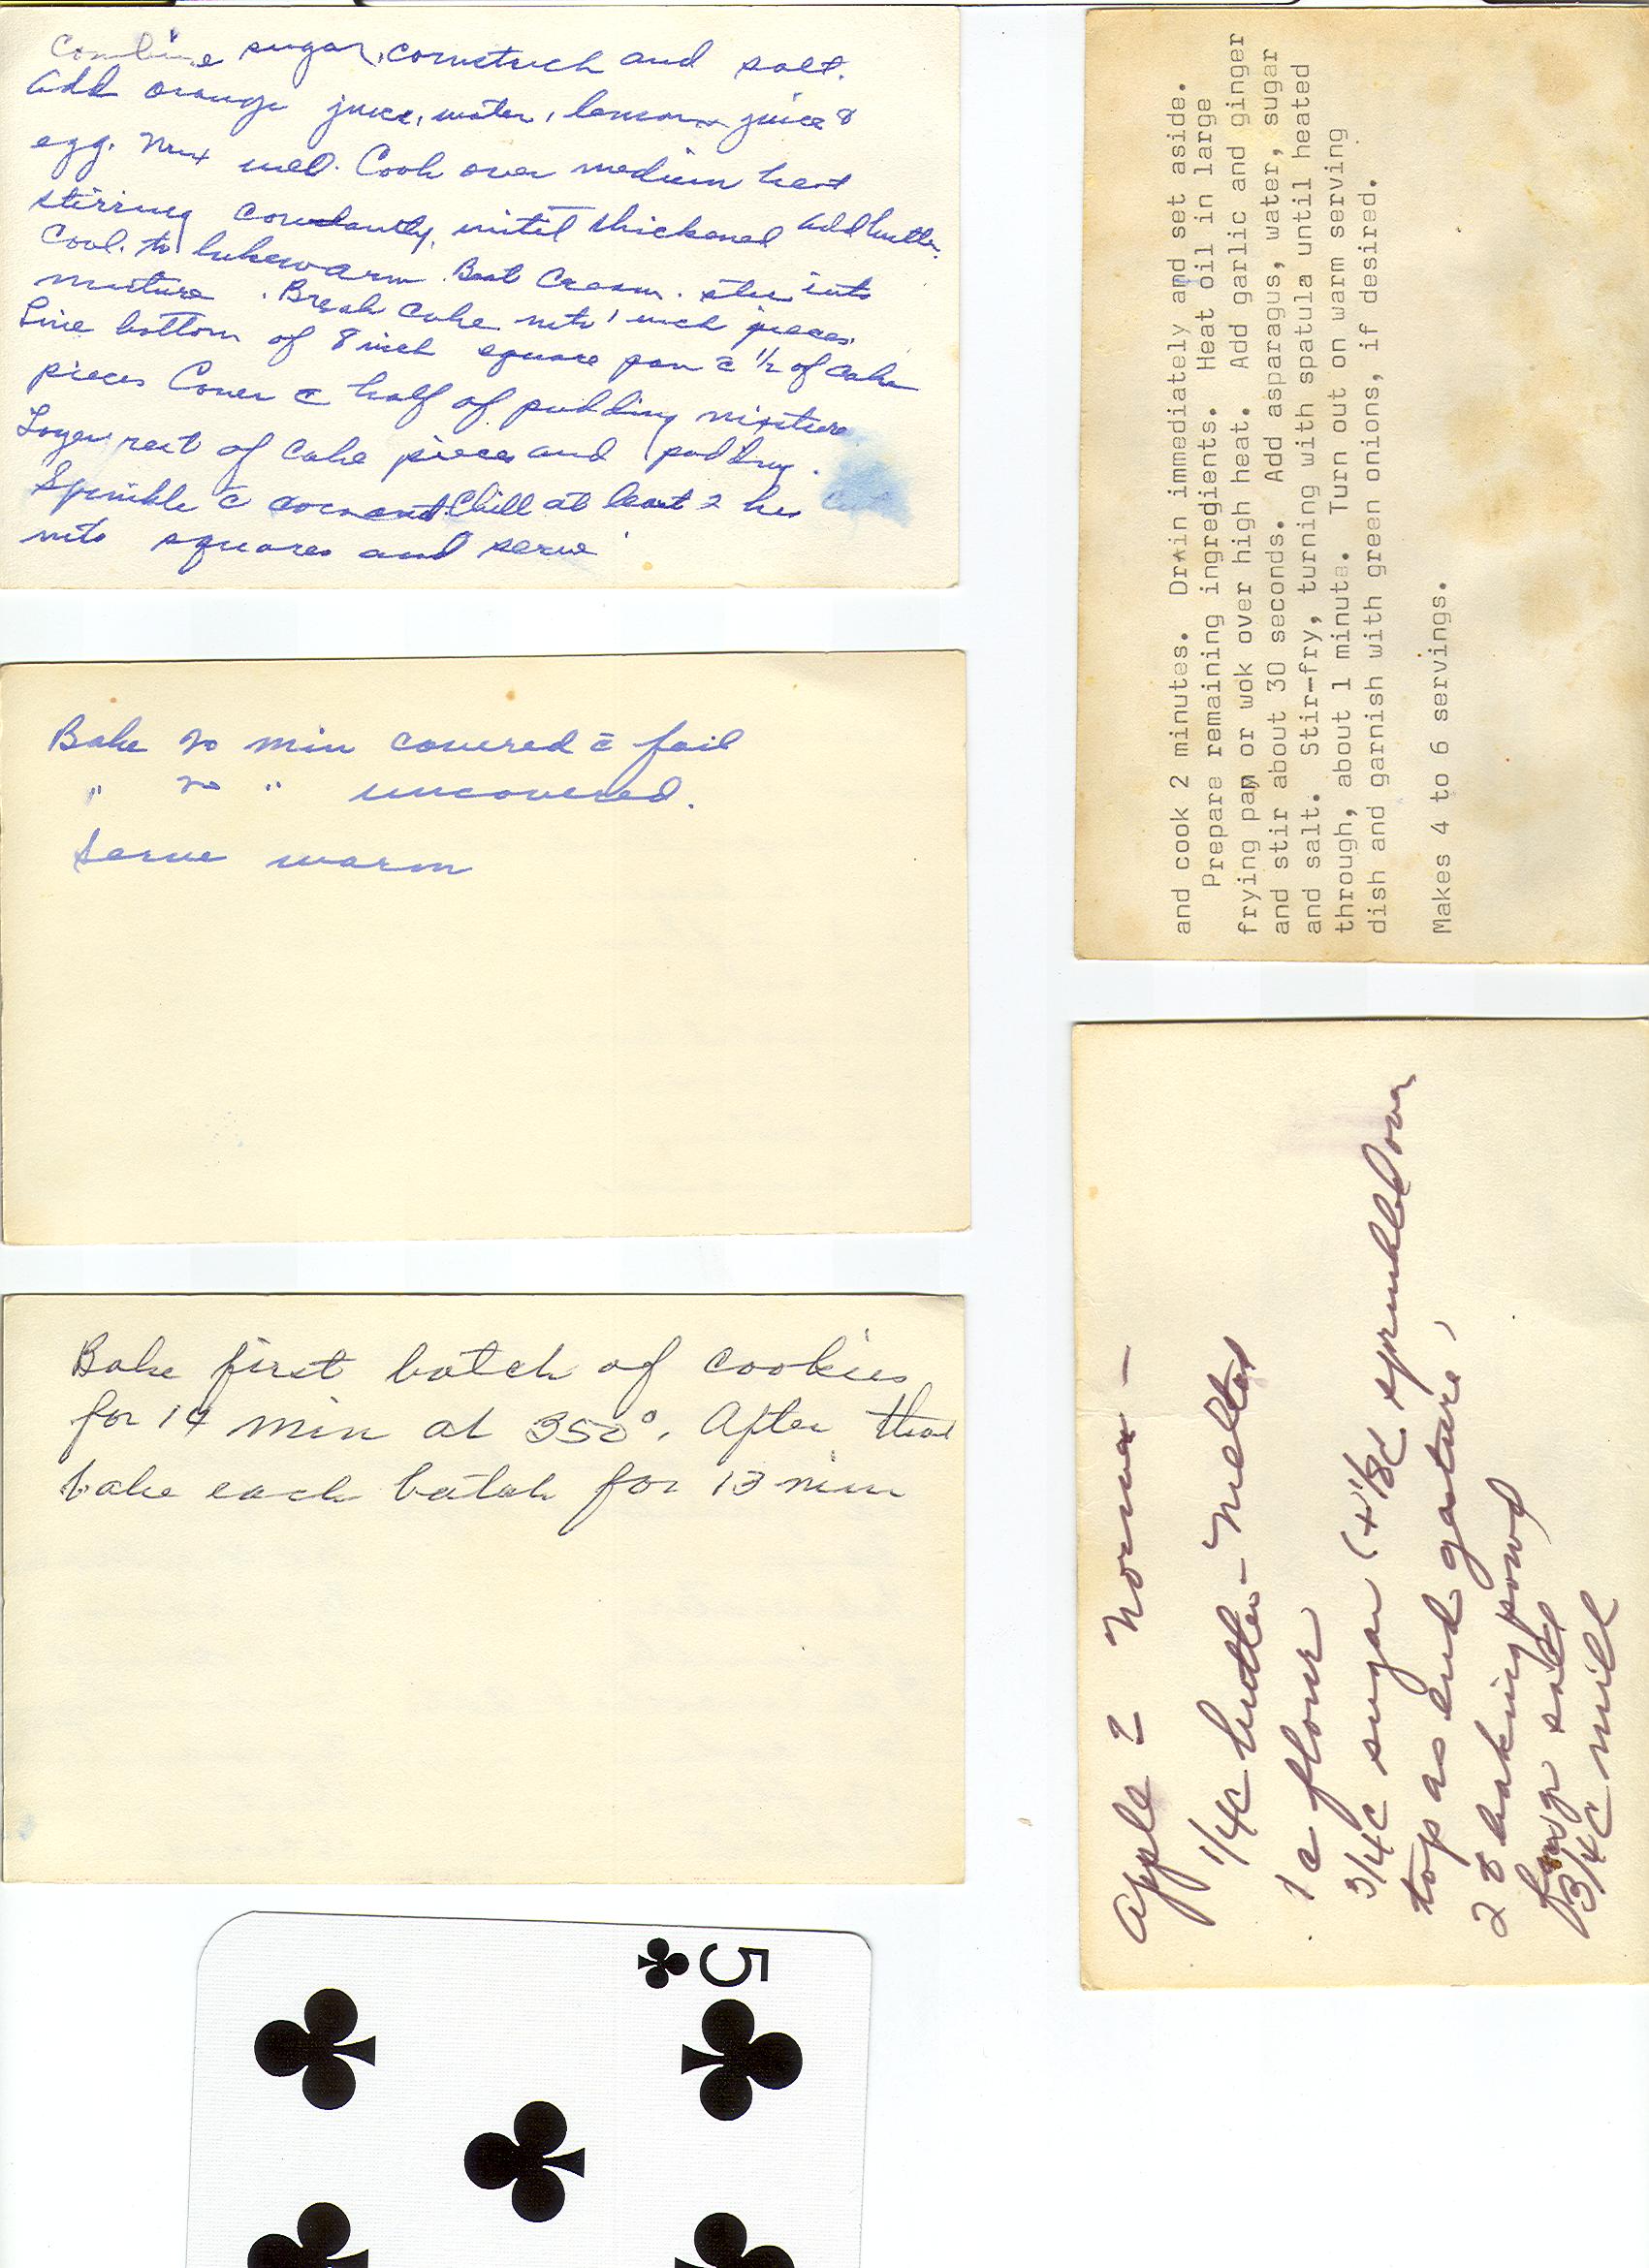 Combine sugar, cornstrch and salt.
Add orange juice, water, lemon juice &
egg. Mix well. Cook over medium heat
stirring constantly, until thickened Add butter.
Cool to lukewarm. Beat Cream. stir into
mixture. Break Cake into 1 inch pieces.
Line bottom of 8 inch square pan c̄ 1/2 of cake
pieces Cover c̄ half of pudding mixture
Layer rest of cake pieces and pudding.
Sprinkle c̄ coconut Chill at least 2 hrs Cut
into squares and serve
Bake 20 min covered c̄ foil
" 20 " uncovered.
Serve warm
Bake first batch of cookies
for 14 min at 350°. After that
bake each batch for 13 min
5
and cook 2 minutes. Drain immediately and set aside.
Prepare remaining ingredients. Heat oil in large
frying pan or wok over high heat. Add garlic and ginger
and stir about 30 seconds. Add asparagus, water, sugar
and salt. Stir-fry, turning with spatula until heated
through, about 1 minute. Turn out on warm serving
dish and garnish with green onions, if desired.
Makes 4 to 6 servings.
Apple 2 Norma -
1/4c butter - Melted
1 c flour
3/4c sugar (+ 1/8c sprinkled over
top as end gesture)
2 t baking powd
salt
3/4c milk